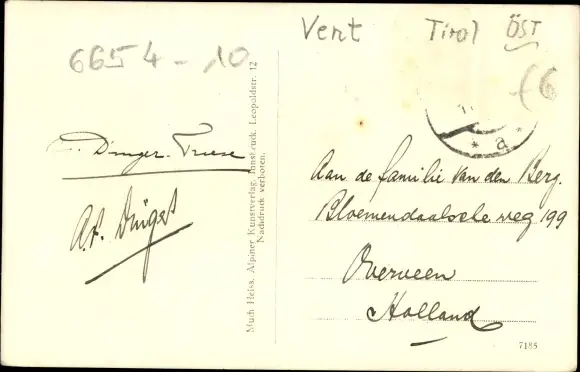 Vent Tirol ÖST
6654-10
(6
* a *
Dinger-Friese
A.F. Dinger
Much Heiss, Alpiner Kunstverlag, Innsbruck, Leopoldstr. 12
Nachdruck verboten.
Aan de familie van den Berg.
Bloemendaalsche weg 199
Overveen
Holland
7185